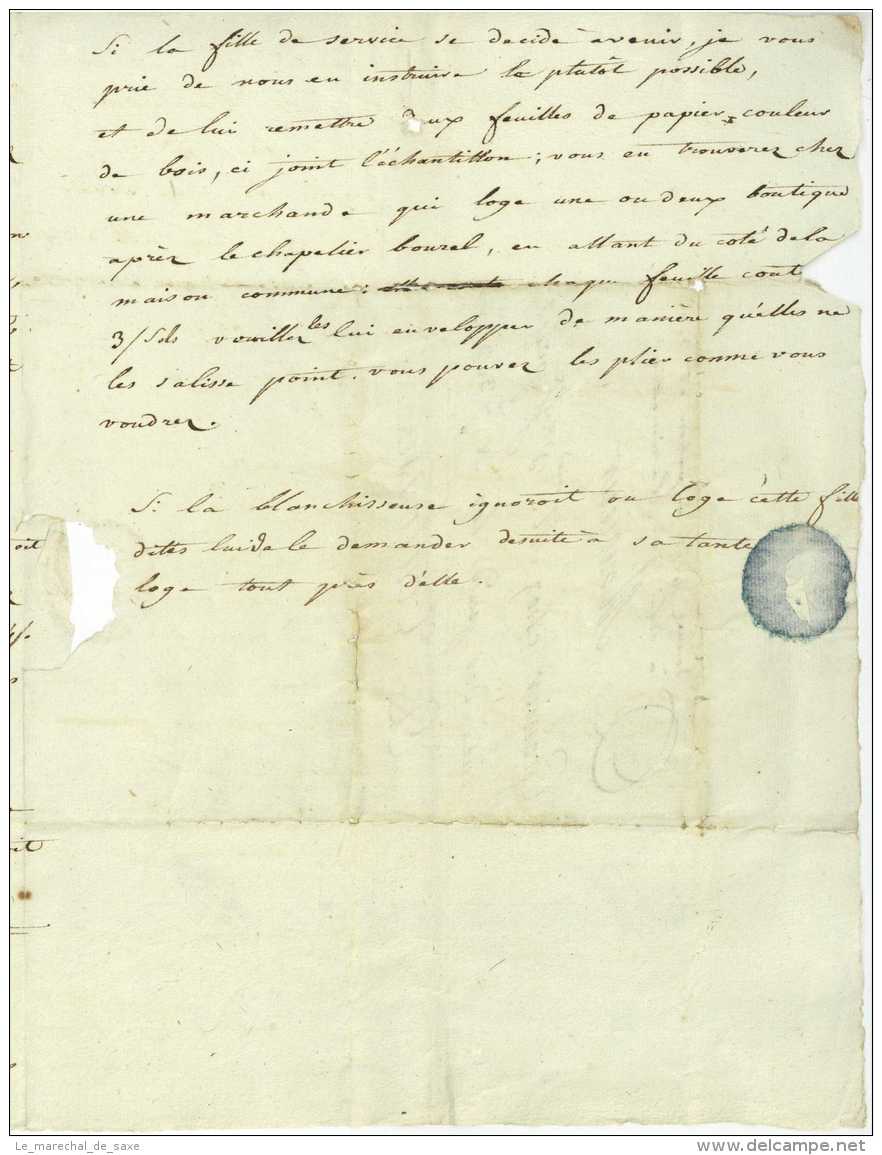 Si la fille de service se decide à avenir, je vous
prie de nous en instruire le plutôt possible,
et de lui remettre deux feuilles de papier couleur
de bois, ci joint l'échantillon; vous en trouverez chez
une marchande qui loge une ou deux boutique
après le chapelier bourel, en allant du coté de la
maison commune: chaque feuille cout
3/ sols vouillez les lui envelopper de manière qu'elles ne
les salisse point. vous pouvez les plier comme vous
voudrez.
Si la blanchisseuse ignoroit ou loge cette fille
dites lui de le demander desuite à sa tante
loge tout près d'elle.
Le_marechal_de_saxe
www.delcampe.net